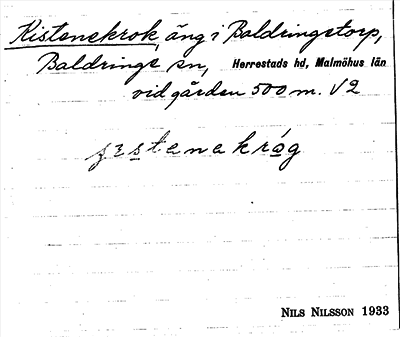 Kistenekrok, äng i Baldringstorp,
Baldrings sn, Herrestads hd, Malmöhus län
vid gården 500 m. V2
NILS NILSSON 1933